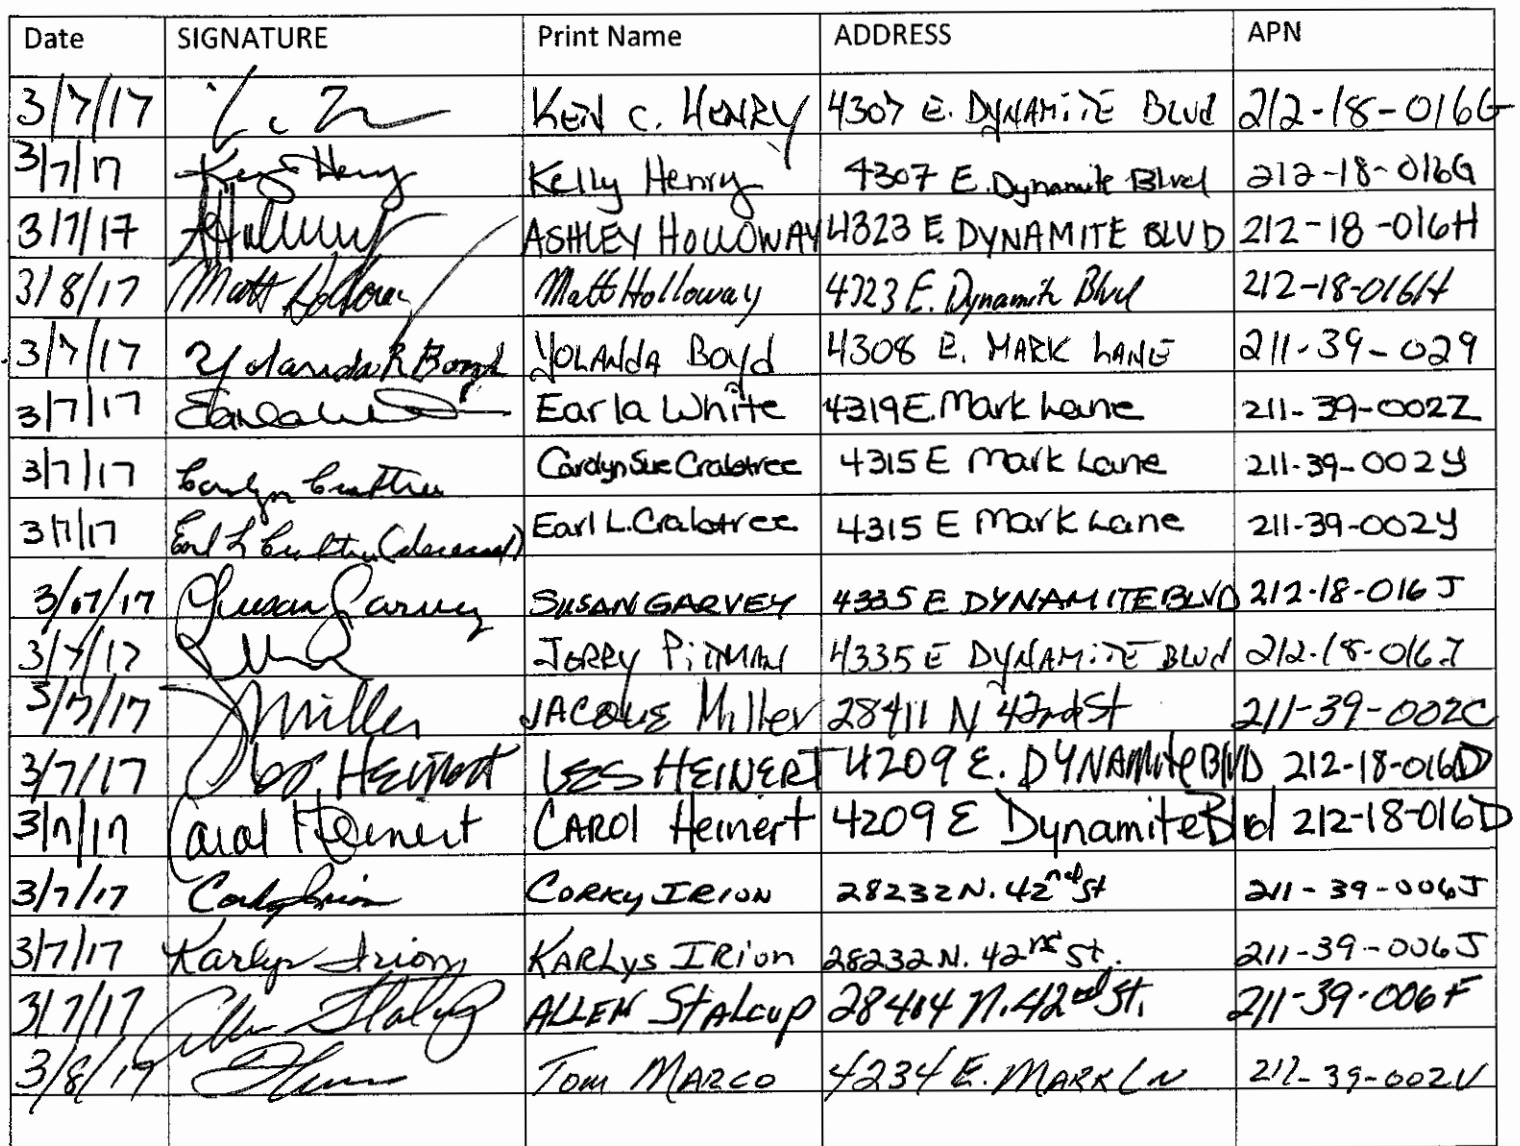 Date SIGNATURE Print Name ADDRESS APN
3/7/17 KEN C. HENRY 4307 E. DYNAMITE BLVD 212-18-016G
3/7/17 Kelly Henry Kelly Henry 4307 E. Dynamite Blvd 212-18-016G
3/7/17 AHolloway ASHLEY HOLLOWAY 4323 E. DYNAMITE BLVD 212-18-016H
3/8/17 Matt Holloway Matt Holloway 4323 E. Dynamite Blvd 212-18-016H
3/7/17 Yolanda R Boyd YOLANDA Boyd 4308 E. MARK LANE 211-39-029
3/7/17 Earla White Earla White 4319 E. Mark Lane 211-39-002Z
3/7/17 Carolyn Crabtree Carolyn Sue Crabtree 4315 E Mark Lane 211-39-002Y
3/7/17 Earl L Crabtree (deceased) Earl L. Crabtree 4315 E Mark Lane 211-39-002Y
3/07/17 Susan Garvey SUSAN GARVEY 4335 E DYNAMITE BLVD 212-18-016J
3/7/17 JERRY PITMAN 4335 E DYNAMITE BLVD 212-18-016J
3/7/17 JMiller JACQUE Miller 28411 N 42nd St 211-39-002C
3/7/17 Les HEINERT LES HEINERT 4209 E. DYNAMITE BLVD 212-18-016D
3/7/17 Carol Heinert CAROl Heinert 4209 E Dynamite Blvd 212-18-016D
3/7/17 Corky Irion CORKY IRION 28232 N. 42nd St 211-39-006J
3/7/17 Karlys Irion KARLys IRion 28232 N. 42nd St. 211-39-006J
3/7/17 Allen Stalcup ALLEN STALCUP 28404 N. 42nd St. 211-39-006F
3/8/17 Tom MARCO 4234 E. MARK LN 211-39-002V